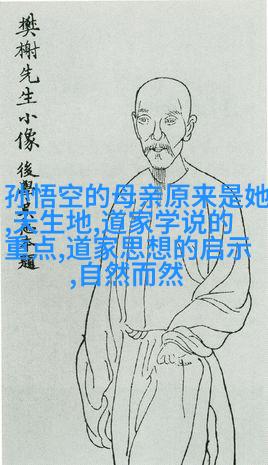 樊榭先生小像
後學吳題
孙悟空的母亲原来是她
,天生地,道家学说的
重点,道家思想的启示
,自然而然